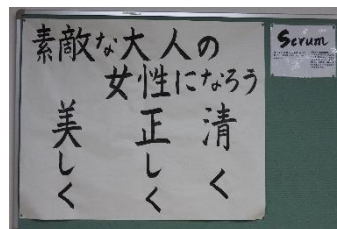 素敵な大人の
女性になろう
清く
正しく
美しく
Scrum